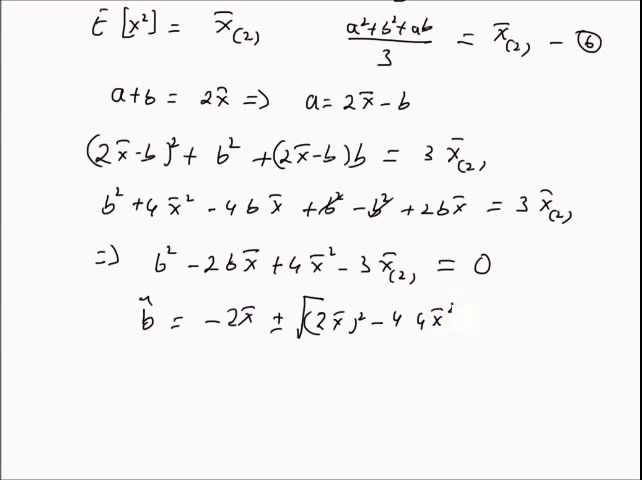 E [x²] = x̄₍₂₎ (a²+b²+ab)/3 = x̄₍₂₎ - ⑥
a+b = 2x̄ => a = 2x̄ - b
(2x̄-b)² + b² + (2x̄-b)b = 3 x̄₍₂₎
b² + 4x̄² - 4bx̄ + b² - b² + 2bx̄ = 3 x̄₍₂₎
=> b² - 2bx̄ + 4x̄² - 3x̄₍₂₎ = 0
b̂ = -2x̄ ± √(2x̄)² - 4 4x̄²